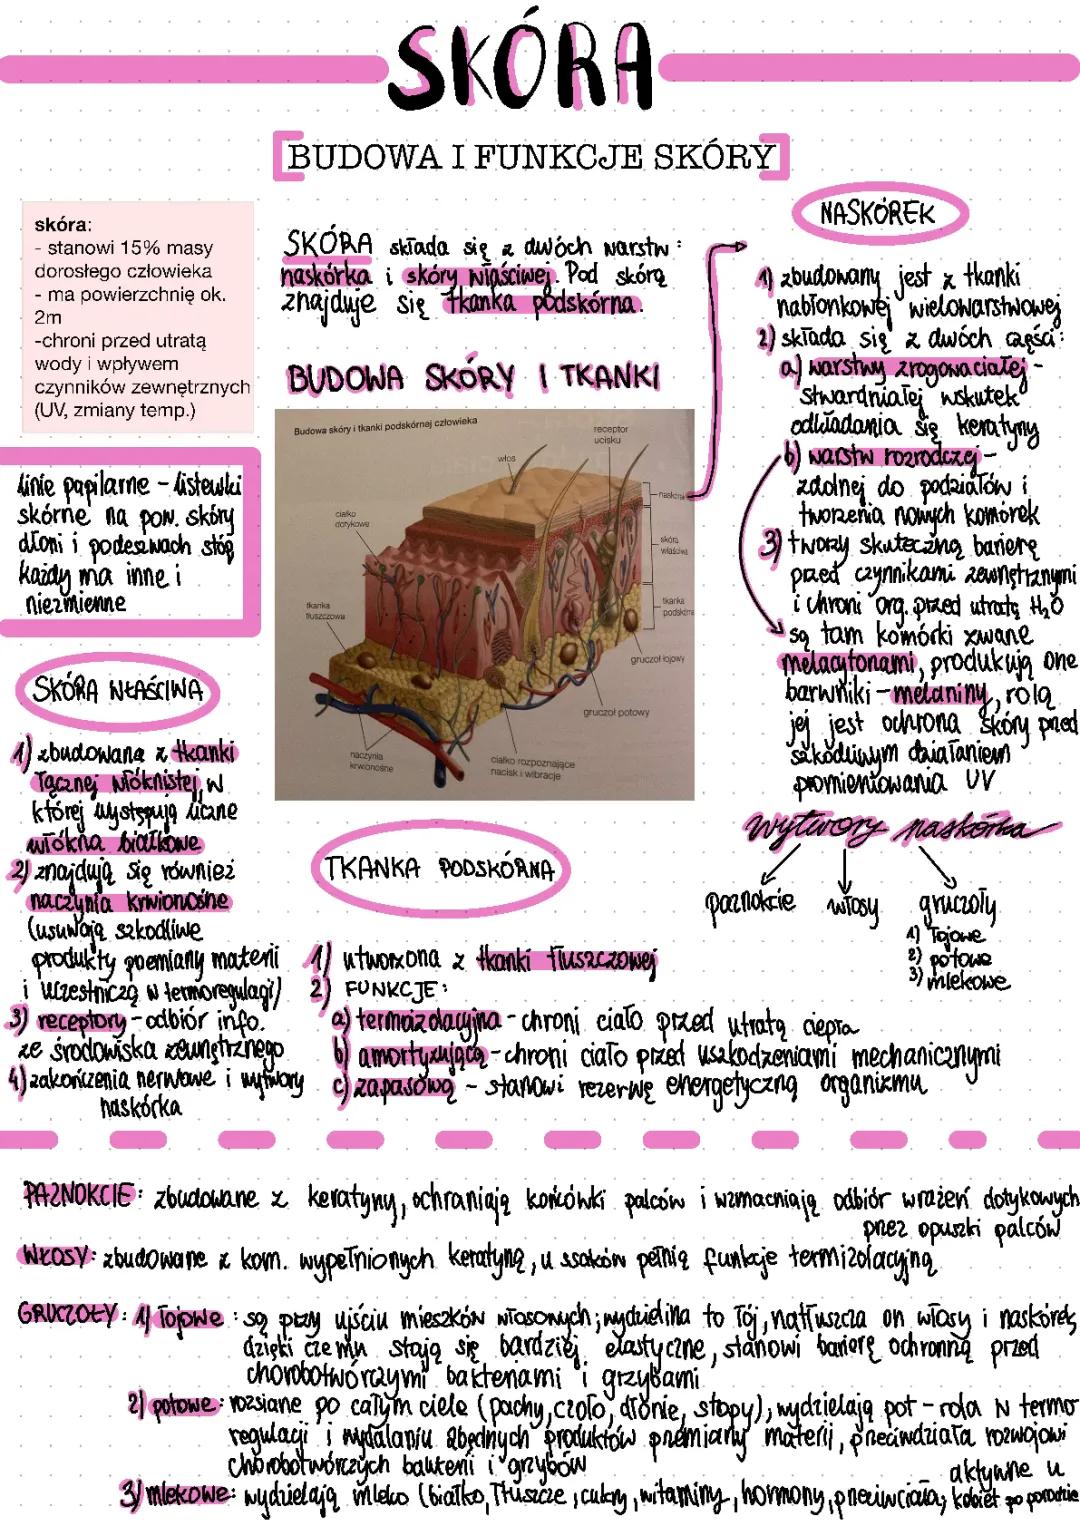 SKÓRA
BUDOWA I FUNKCJE SKÓRY
skóra:
- stanowi 15% masy
dorosłego człowieka
- ma powierzchnię ok.
2m
-chroni przed utratą
wody i wpływem
czynników zewnętrznych
(UV, zmiany temp.)
linie papilarne - listewki
skórne na pow. skóry
dłoni i podeszwach stóp
każdy ma inne i
niezmienne
SKÓRA składa się z dwóch warstw:
naskórka i skóry właściwej. Pod skórą
znajduje się tkanka podskórna.
BUDOWA SKÓRY I TKANKI
Budowa skóry i tkanki podskórnej człowieka
receptor
ucisku
włos
naskórek
ciałko
dotykowe
skóra
właściwa
tkanka
tłuszczowa
tkanka
podskórna
gruczoł łojowy
gruczoł potowy
naczynia
krwionośne
ciałko rozpoznające
nacisk i wibracje
NASKÓREK
1) zbudowany jest z tkanki
nabłonkowej wielowarstwowej
2) składa się z dwóch części:
a) warstwy zrogowaciałej -
stwardniałej wskutek
odkładania się keratyny
b) warstw rozrodczej -
zdolnej do podziałów i
tworzenia nowych komórek
3) tworzy skuteczną barierę
przed czynnikami zewnętrznymi
i chroni org. przed utratą H₂O
są tam komórki zwane
melacytonami, produkują one
barwniki - melaniny, rolą
jej jest ochrona skóry przed
szkodliwym działaniem
promieniowania UV
wytwory naskórka
paznokcie włosy gruczoły
1) łojowe
2) potowe
3) mlekowe
SKÓRA WŁAŚCIWA
1) zbudowana z tkanki
łącznej włóknistej, w
której występują liczne
włókna białkowe
2) znajdują się również
naczynia krwionośne
(usuwają szkodliwe
produkty przemiany materii
i uczestniczą w termoregulacji)
3) receptory - odbiór info.
ze środowiska zewnętrznego
4) zakończenia nerwowe i wytwory
naskórka
TKANKA PODSKÓRNA
1) utworzona z tkanki tłuszczowej
2) FUNKCJE:
a) termoizolacyjna - chroni ciało przed utratą ciepła
b) amortyzującą - chroni ciało przed uszkodzeniami mechanicznymi
c) zapasową - stanowi rezerwę energetyczną organizmu
PAZNOKCIE: zbudowane z keratyny, ochraniają końcówki palców i wzmacniają odbiór wrażeń dotykowych
przez opuszki palców
WŁOSY: zbudowane z kom. wypełnionych keratyną, u ssaków pełnią funkcje termizolacyjną
GRUCZOŁY: 1) łojowe: są przy ujściu mieszków włosowych; wydzielina to łój, natłuszcza on włosy i naskórek,
dzięki czemu stają się bardziej elastyczne, stanowi barierę ochronną przed
chorobotwórczymi bakteriami i grzybami
2) potowe: rozsiane po całym ciele (pachy, czoło, dłonie, stopy); wydzielają pot - rola w termo
regulacji i wydalaniu zbędnych produktów przemiany materii, przeciwdziała rozwojowi
chorobotwórczych bakterii i grzybów
3) mlekowe: wydzielają mleko (białko, tłuszcze, cukry, witaminy, hormony, przeciwciała, aktywne u
kobiet po porodzie